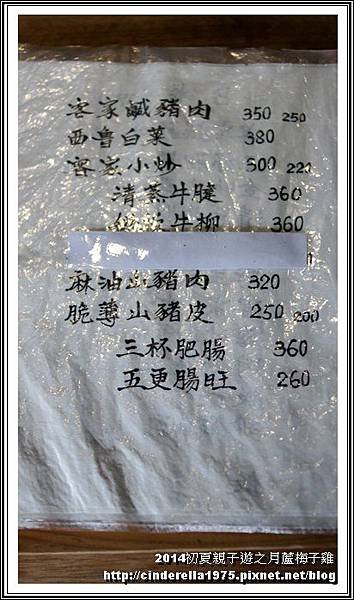 客家鹹豬肉 350 250
西魯白菜 380
客家小炒 300 220
清蒸牛腱 360
牛柳 360
麻油山豬肉 320
脆薄山豬皮 250 200
三杯肥腸 360
五更腸旺 260
2014初夏親子遊之月蘆梅子雞
http://cinderella1975.pixnet.net/blog